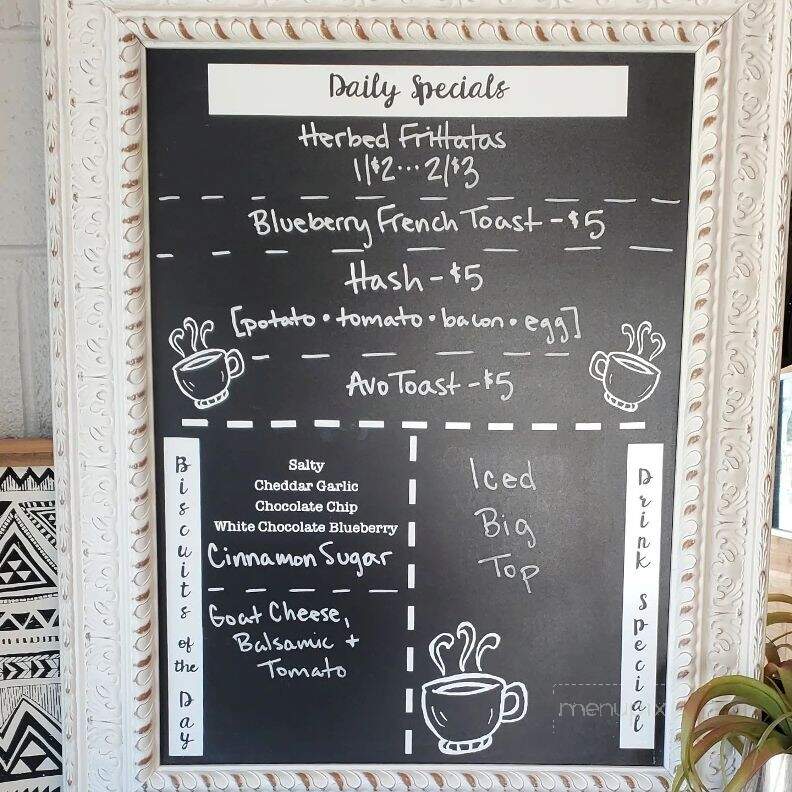 Daily Specials
Herbed Frittatas
1/$2...2/$3
Blueberry French Toast - $5
Hash - $5
[potato • tomato • bacon • egg]
Avo Toast - $5
Biscuits of the Day
Salty
Cheddar Garlic
Chocolate Chip
White Chocolate Blueberry
Cinnamon Sugar
Goat Cheese,
Balsamic +
Tomato
Iced
Big
Top
Drink Special